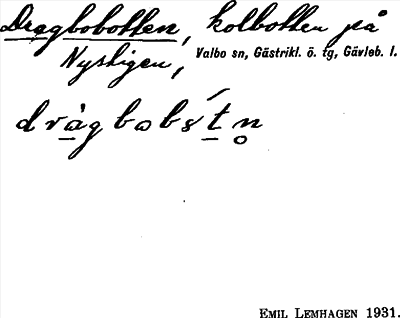 Dragbobotten, kolbotten på
Nystigen, Valbo sn, Gästrikl. ö. tg, Gävleb. l.
dràgbobśtn̥
EMIL LEMHAGEN 1931.